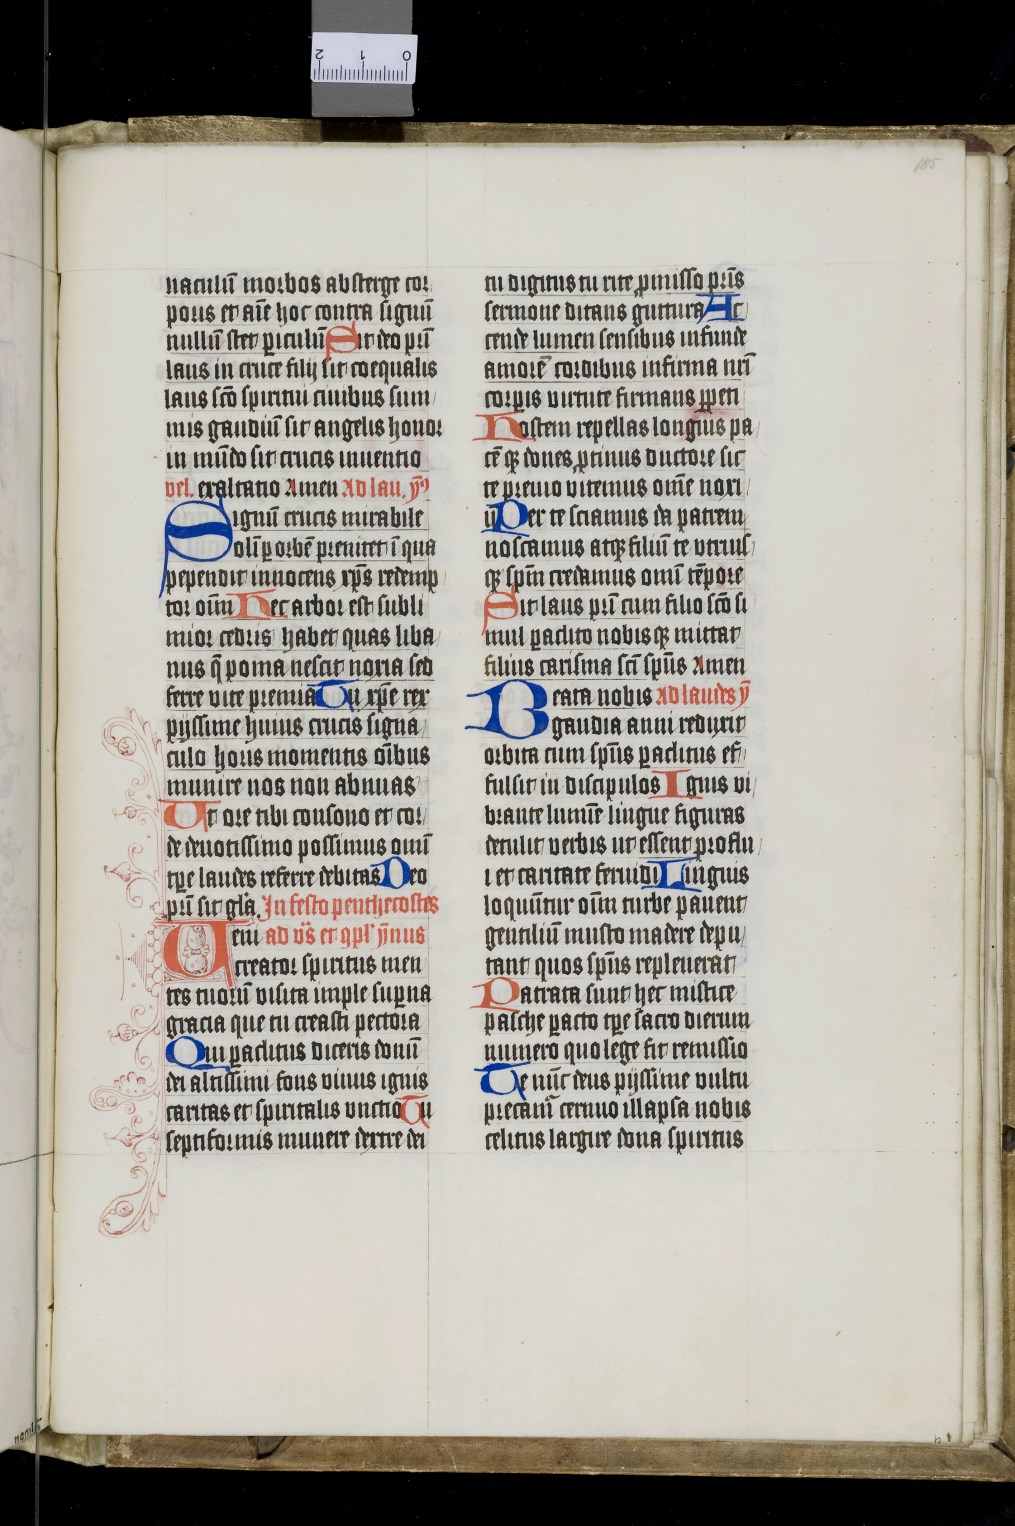 185
naculū morbos absterge cor
poris et aīe hoc contra signū
nullū stet ꝑiculū Sit deo pr̄i
laus in cruce filij sit coequalis
laus sc̄o spiritui ciuibus sum
mis gaudiū sit angelis honor
in mūdo sit crucis inuentio
vel. exaltatio Amen Ad lau. yꝰ
Signū crucis mirabile
olī ꝑ orbē prenitet ī qua
pependit innocens xp̄s redemp
tor oīm Hec arbor est subli
mior cedris habet quas liba
nus q̄ poma nescit noxia sed
ferre vite premiā Tu xp̄e rex
pijssime huius crucis signa
culo horis momentis oībus
munire nos non abnuas
Ut ore tibi consono et cor
de deuotissimo possimus omī
tꝑe laudes referre debitas Deo
pr̄i sit gl̄a. In festo penthecostes
Ueni ad vr̄s et ꝯpl' ẏmnus
creator spiritus men
tes tuorū visita imple suꝑna
gracia que tu creasti pectora
Qui ꝑaclitus diceris donū
dei altissimi fons viuus ignis
caritas et spiritalis vnctio Tu
septiformis munere dextre dei
tu digitus tu rite ꝓmisso pr̄is
sermone ditans guttura Ac
cende lumen sensibus infunde
amorē cordibus infirma nr̄i
corꝑis virtute firmans ꝑpeti
Hostem repellas longius pa
cē qꝫ dones ꝓtinus ductore sic
te preuio vitemus omē noxi
ū Per te sciamus da patrem
noscamus atqꝫ filiū te vtrius
qꝫ spm̄ credamus omī tēpore
Sit laus pr̄i cum filio sc̄o si
mul ꝑaclito nobisqꝫ mittat
filius carisma sc̄i spūs Amen
Beata nobis Ad laudes ȳ
gaudia anni reduxit
orbita cum spūs ꝑaclitus ef
fulsit in discipulos Ignis vi
brante lumīe lingue figuras
detulit verbis ut essent proflu
i et caritate feruidi Linguis
loquūtur oīm turbe pauent
gentiliū musto madere depu
tant quos spūs repleuerat
Patrata sunt hec mistice
pasche ꝑacto tꝑe sacro dierum
numero quo lege fit remissio
Te nūc deus pijssime vultu
precamͬ cernuo illapsa nobis
celitus largire dona spiritus
0 1 2